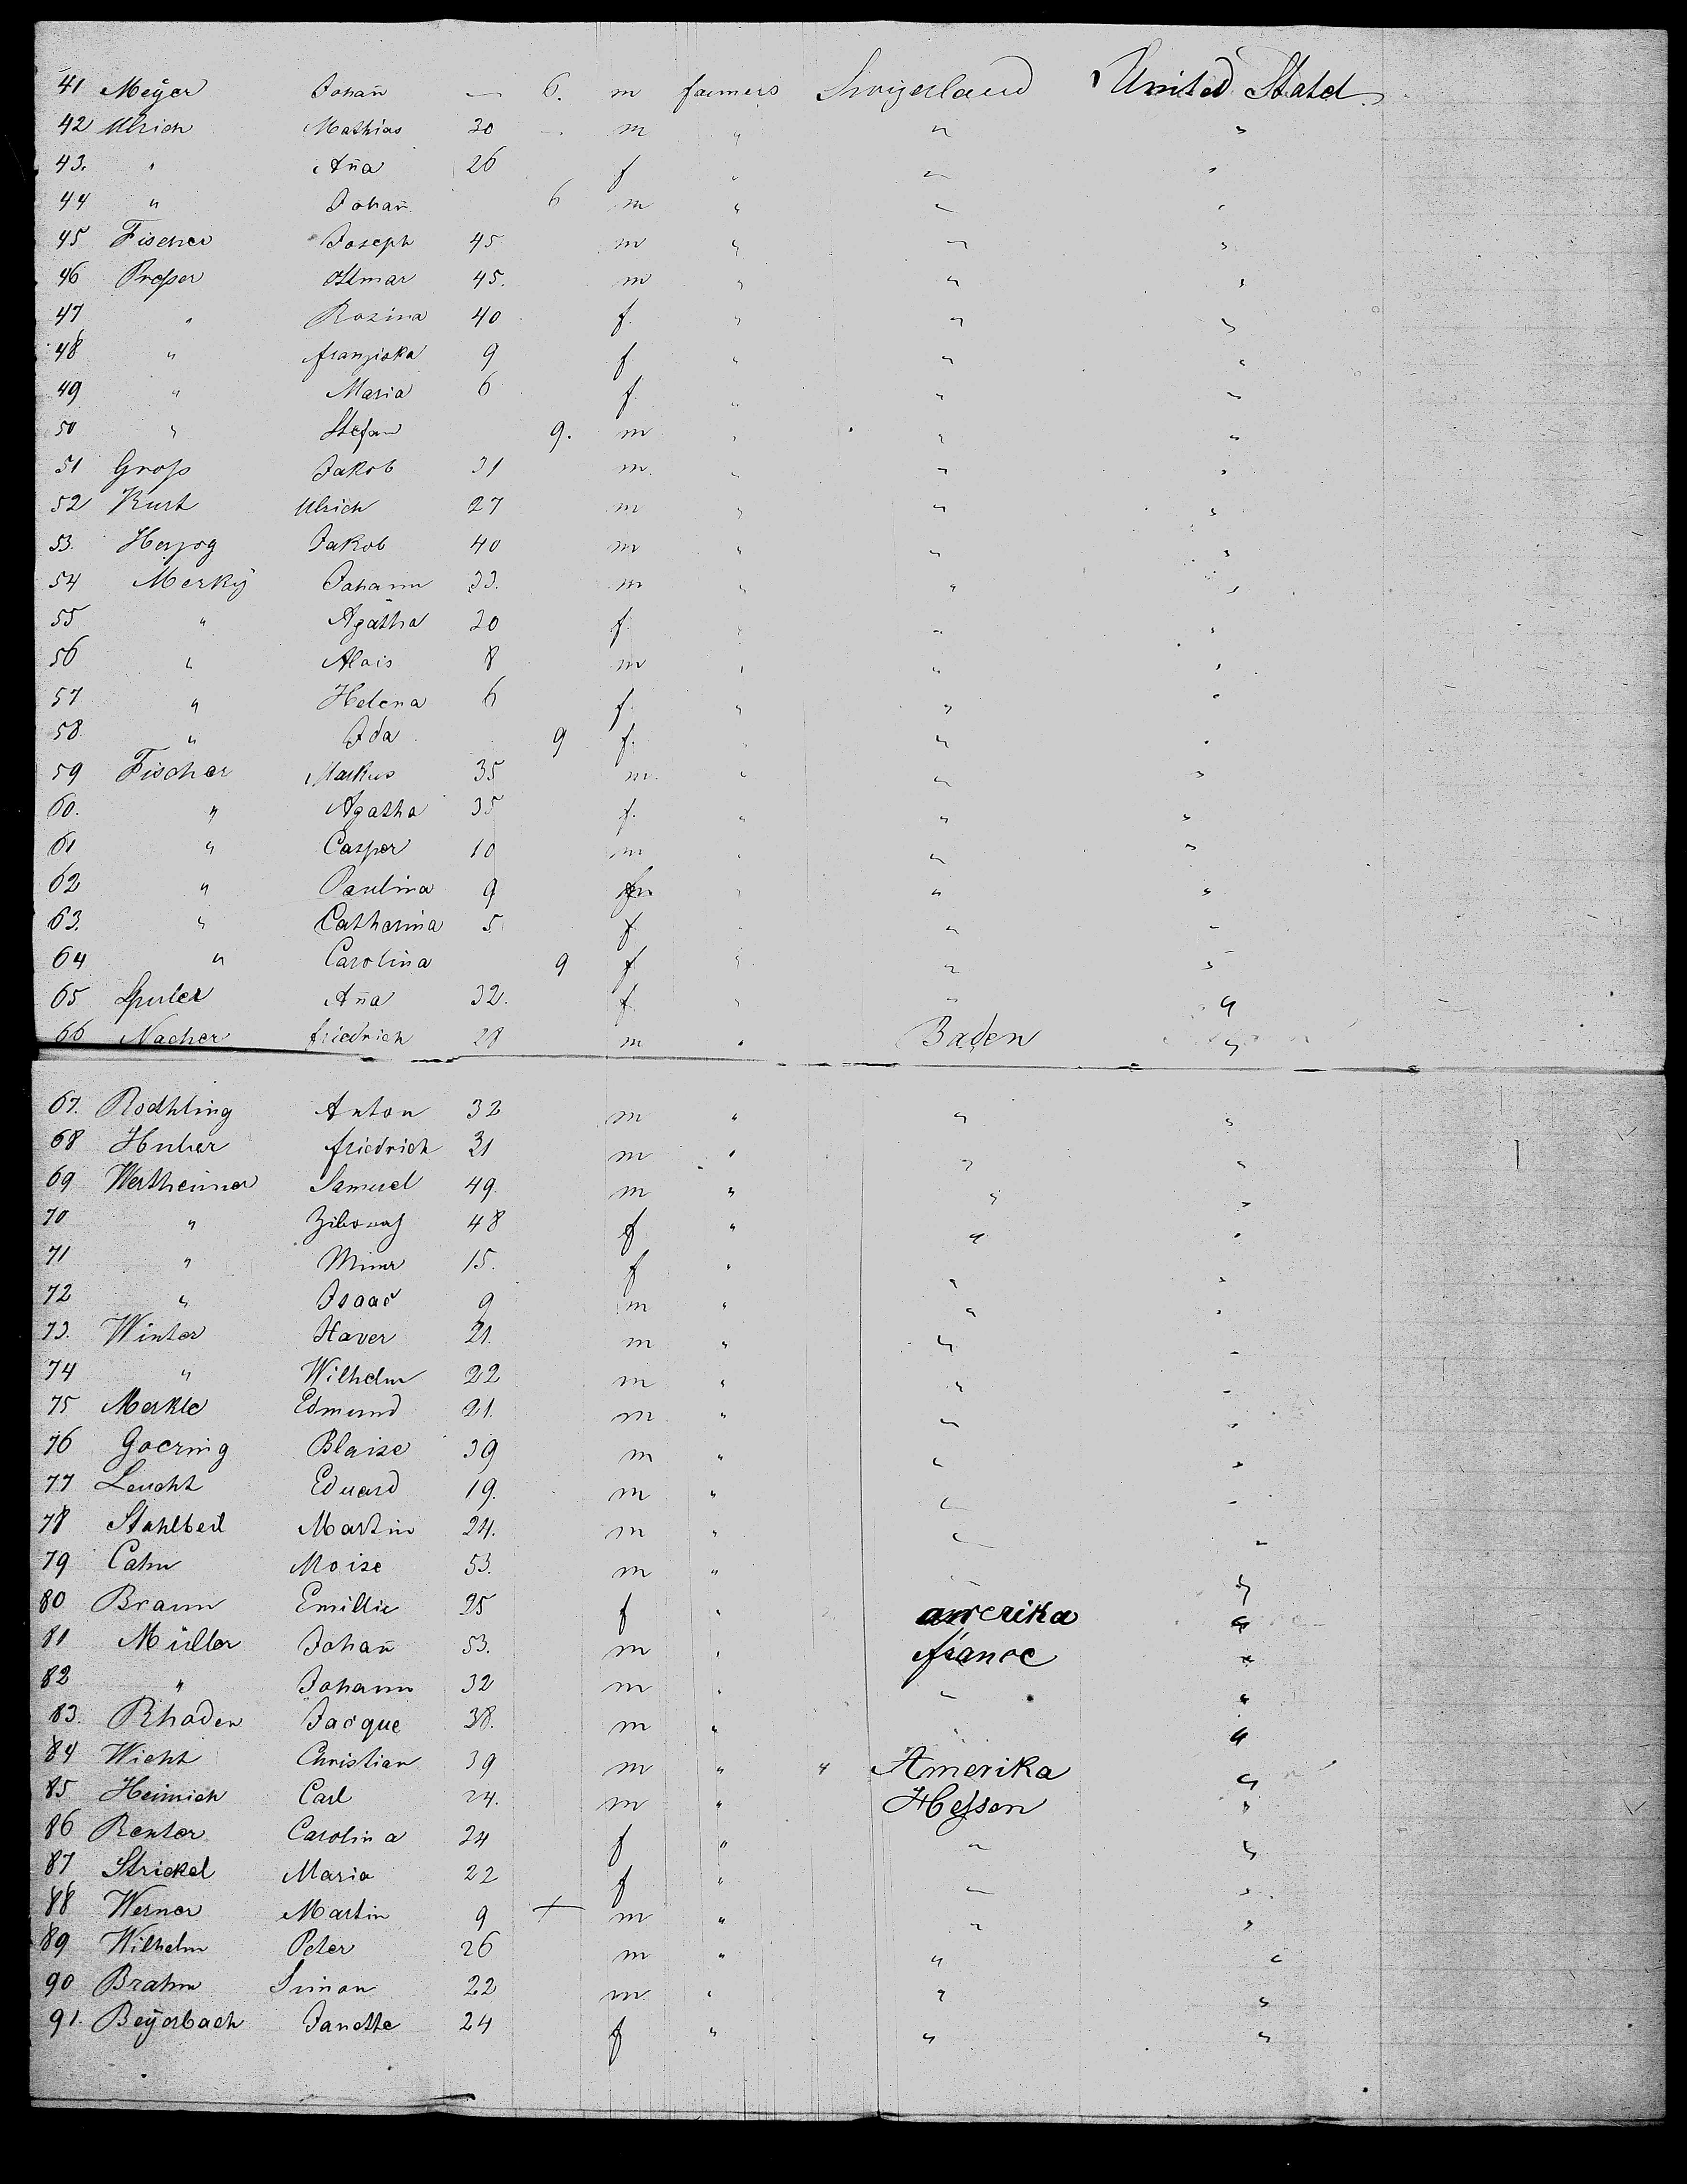 41 Meÿer Johan̄ — 6. m farmers Swizerland United Stated
42 Ulrich Mathias 30 m " " "
43. " An̄a 26 f " " "
44 " Johan̄ 6 m " " "
45 Fischer Joseph 45 m " " "
46 Prosser Otmar 45. m " " "
47 " Rozina 40 f. " " "
48 " franziska 9 f " " "
49 " Maria 6 f. " " "
50 " Stefan 9. m " " "
51 Gross Jakob 31 m. " " "
52 Kurt Ulrich 27 m " " "
53. Herzog Jakob 40 m " " "
54 Merkÿ Johann 33. m " " "
55 " Agatha 30 f. " " "
56 " Alois 8 m " " "
57 " Helena 6 f. " " "
58. " Ida 9 f. " " "
59 Fischer Markus 35 m. " " "
60. " Agatha 35 f. " " "
61 " Casper 10 m " " "
62 " Paulina 9 " " "
63. " Catharina 5. f " " "
64 " Carolina 9 f " " "
65 Spuler An̄a 32. f " " "
66 Nacher friedrich 28 m " Baden "
67. Rodhling Anton 32 m " " "
68 Huber friedrich 31 m " " "
69 Wertheimer Samuel 49. m " " "
70 " 48 f " " "
71 " 15. f " " "
72 " Isaac 9 m " " "
73. Winter Xaver 21. m " " "
74 " Wilhelm 22 m " " "
75 Merkle Edmund 21. m " " "
76 Goering Blaise 39 m " " "
77 Leucht Eduard 19. m " " "
78 Stahlbeil Martin 24. m " " "
79 Cahn Moise 53. m " " "
80 Braun Emillie 25 f " amerika "
81 Müller Johan̄ 53. m " france "
82 " Johann 32 m " " "
83. Rhoden Jacque 38. m " " "
84 Wicht Christian 39 m " " Amerika "
85 Heinrich Carl 24. m " Hessen "
86 Renter Carolina 24 f " " "
87 Strickel Maria 22 f " " "
88 Werner Martin 9 + m " " "
89 Wilhelm Peter 26 m " " "
90 Brahm Simon 22 m " " "
91. Beÿerbach Janette 24 f " " "